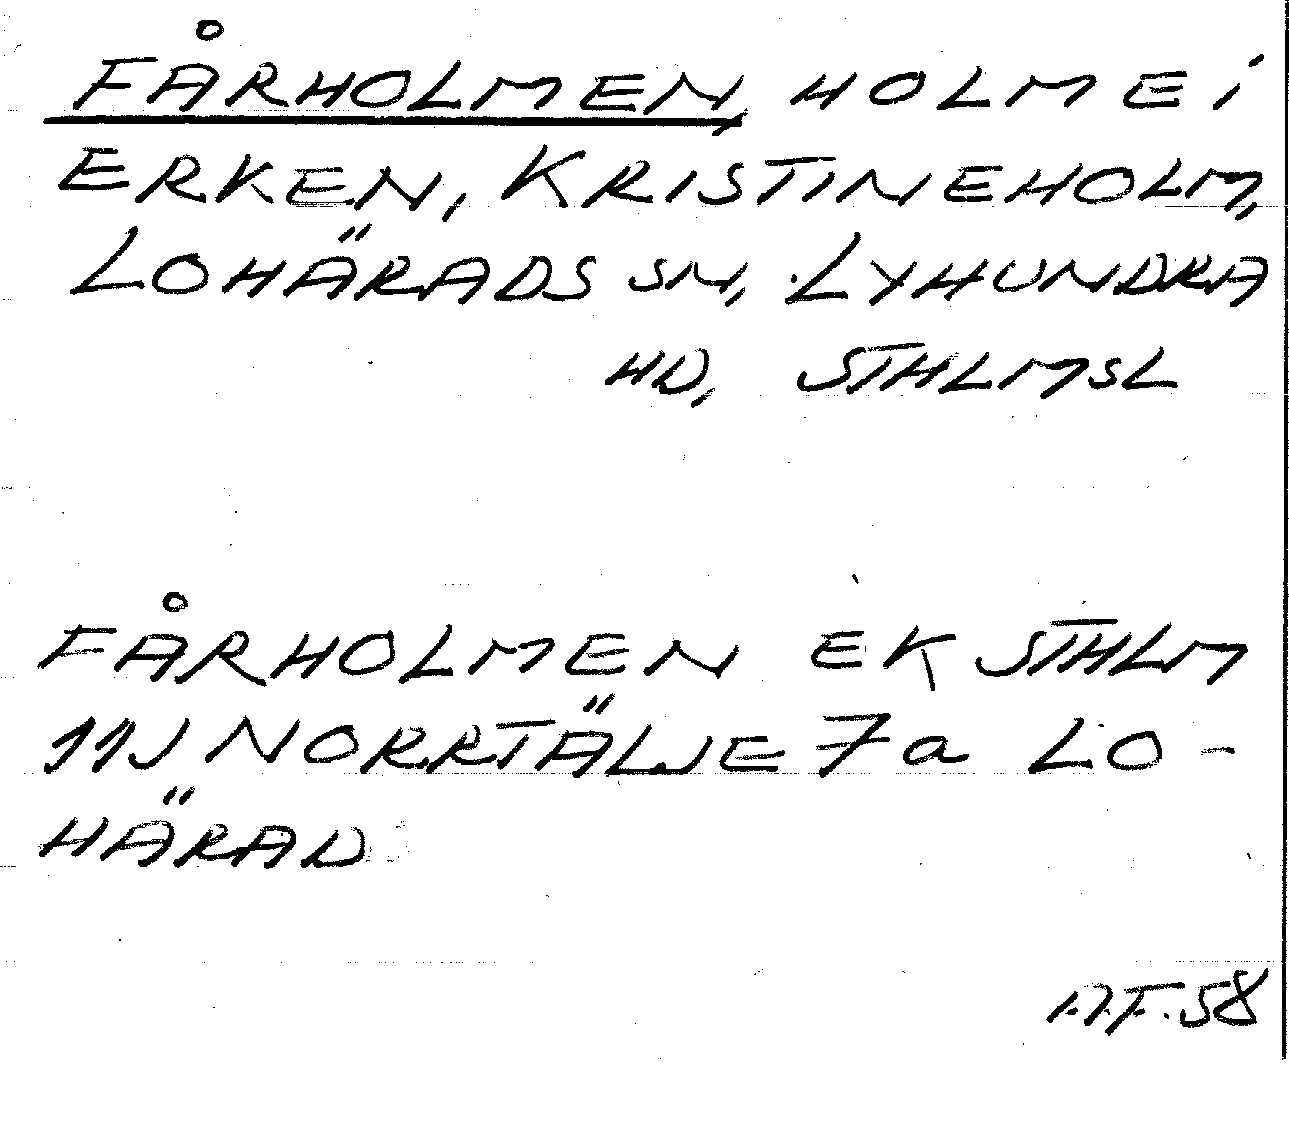 FÅRHOLMEN, HOLME I
ERKEN, KRISTINEHOLM,
LOHÄRADS SN, LYHUNDRA
HD, STHLMSL
FÅRHOLMEN EK STHLM
11J NORRTÄLJE 7a LO-
HÄRAD
A.F.58